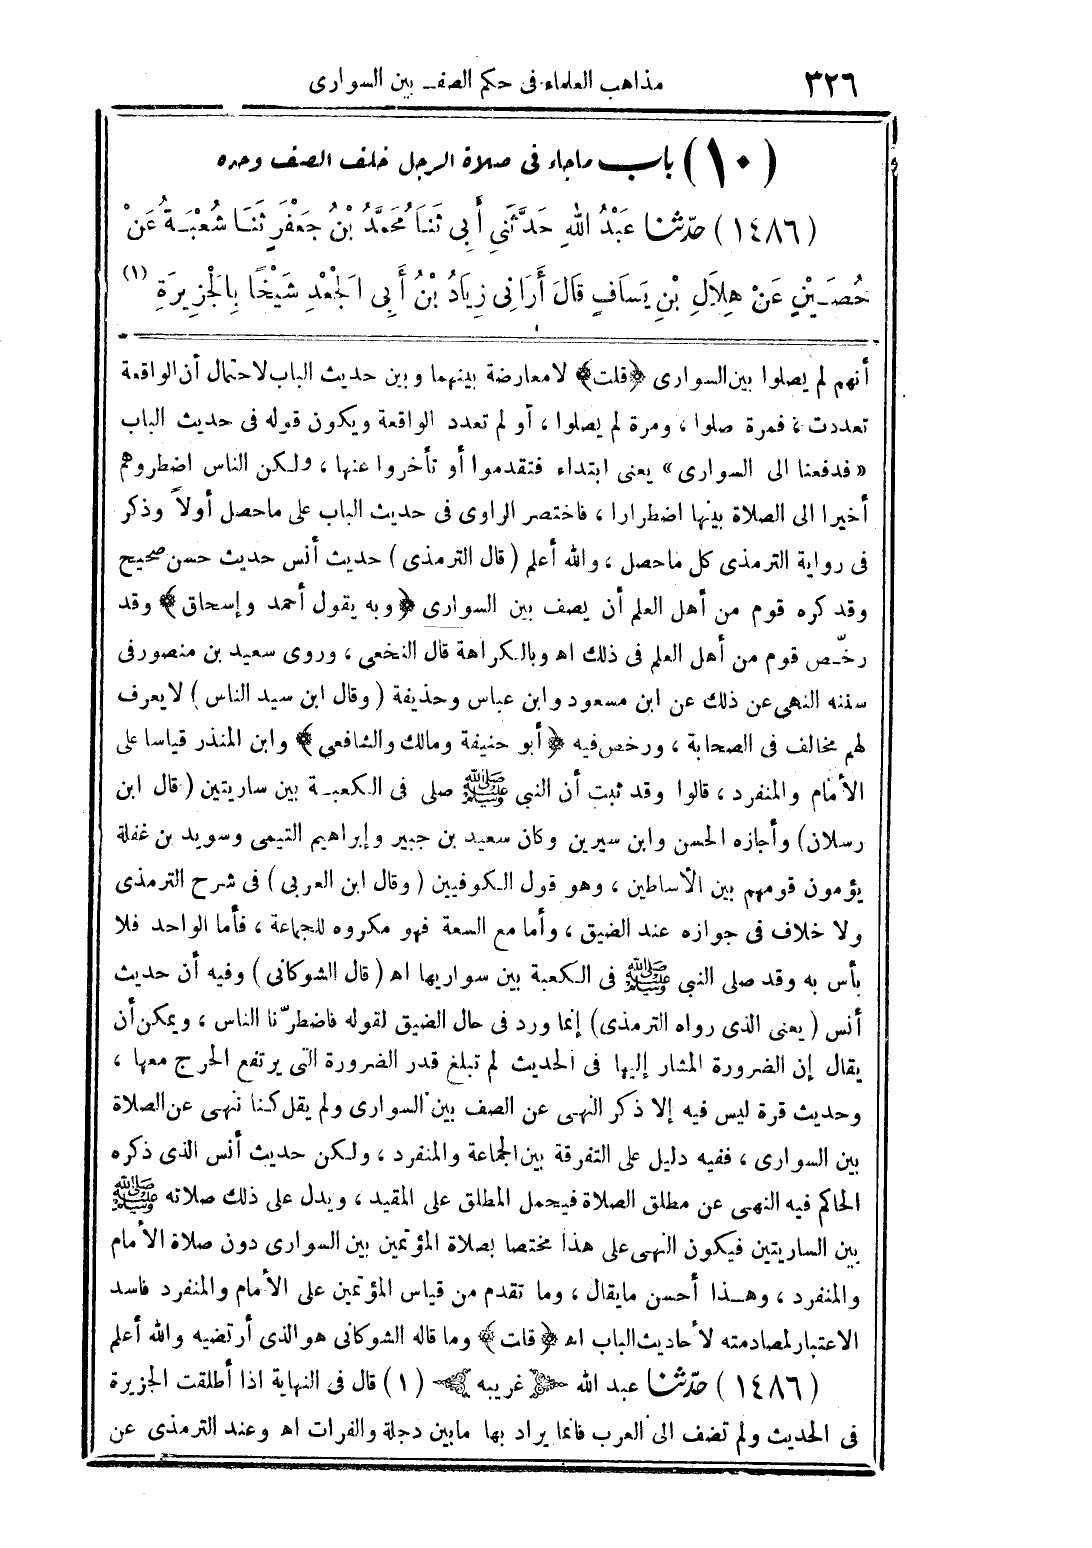 ٣٢٦ مذاهب العلماء فى حكم الصف بين السوارى
(١٠) باب ماجاء فى صلاة الرجل خلف الصف وحده
(١٤٨٦) حَدّثنا عَبْدُ اللهِ حَدَّثَنِي أَبِي ثَنَا مُحَمَّدُ بْنُ جَعْفَرٍ ثَنَا شُعْبَةُ عَنْ
حُصَيْنٍ عَنْ هِلاَلِ بْنِ يَسَافٍ قَالَ أَرَانِي زِيَادُ بْنُ أَبِي الْجَعْدِ شَيْخًا بِالْجَزِيرَةِ (١)
أنهم لم يصلوا بين السوارى ﴿قلت﴾ لامعارضة بينهما وبين حديث الباب لاحتمال أن الواقعة
تعددت ، فمرة صلوا ، ومرة لم يصلوا ، أو لم تعدد الواقعة ويكون قوله فى حديث الباب
« فدفعنا الى السوارى » يعنى ابتداء فتقدموا أو تأخروا عنها ، ولكن الناس اضطروهم
أخيرا الى الصلاة بينها اضطرارا ، فاختصر الراوى فى حديث الباب على ماحصل أولاً وذكر
فى رواية الترمذى كل ماحصل ، والله أعلم (قال الترمذى) حديث أنس حديث حسن صحيح
وقد كره قوم من أهل العلم أن يصف بين السوارى ﴿وبه يقول أحمد وإسحاق﴾ وقد
رخّص قوم من أهل العلم فى ذلك اه وبالكراهة قال النخعى ، وروى سعيد بن منصور فى
سننه النهى عن ذلك عن ابن مسعود وابن عباس وحذيفة (وقال ابن سيد الناس) لايعرف
لهم مخالف فى الصحابة ، ورخص فيه ﴿أبو حنيفة ومالك والشافعى﴾ وابن المنذر قياسا على
الأمام والمنفرد ، قالوا وقد ثبت أن النبي ﷺ صلى فى الكعبة بين ساريتين (قال ابن
رسلان) وأجازه الحسن وابن سيرين وكان سعيد بن جبير وإبراهيم التيمى وسويد بن غفلة
يؤمون قومهم بين الأساطين ، وهو قول الكوفيين (وقال ابن العربى) فى شرح الترمذى
ولا خلاف فى جوازه عند الضيق ، وأما مع السعة فهو مكروه للجماعة ، فأما الواحد فلا
بأس به وقد صلى النبي ﷺ فى الكعبة بين سواريها اه (قال الشوكانى) وفيه أن حديث
أنس (يعنى الذى رواه الترمذى) إنما ورد فى حال الضيق لقوله فاضطرّنا الناس ، ويمكن أن
يقال إن الضرورة المشار إليها فى الحديث لم تبلغ قدر الضرورة التى يرتفع الحرج معها ،
وحديث قرة ليس فيه إلا ذكر النهى عن الصف بين السوارى ولم يقل كنا ننهى عن الصلاة
بين السوارى ، ففيه دليل على التفرقة بين الجماعة والمنفرد ، ولكن حديث أنس الذى ذكره
الحاكم فيه النهى عن مطلق الصلاة فيحمل المطلق على المقيد ، ويدل على ذلك صلاته ﷺ
بين الساريتين فيكون النهى على هذا مختصا بصلاة المؤتمين بين السوارى دون صلاة الأمام
والمنفرد ، وهذا أحسن مايقال ، وما تقدم من قياس المؤتمين على الأمام والمنفرد فاسد
الاعتبار لمصادمته لأحاديث الباب اه ﴿قلت﴾ وما قاله الشوكانى هو الذى أرتضيه والله أعلم
(١٤٨٦) حدّثنا عبد الله غريبه (١) قال فى النهاية اذا أطلقت الجزيرة
فى الحديث ولم تضف الى العرب فانما يراد بها مابين دجلة والفرات اه وعند الترمذى عن